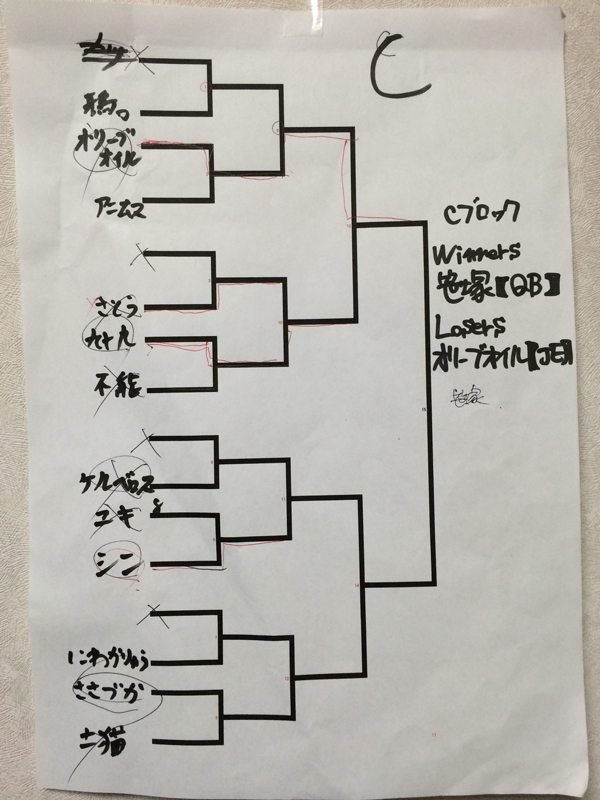 C
オリーブ
オイル
アニムス
さとう
不能
ケルベロス
ユキ
シン
にわかりゅう
ささづか
Cブロック
Winners
笹塚【QB】
Losers
オリーブオイル【JE】
笹塚